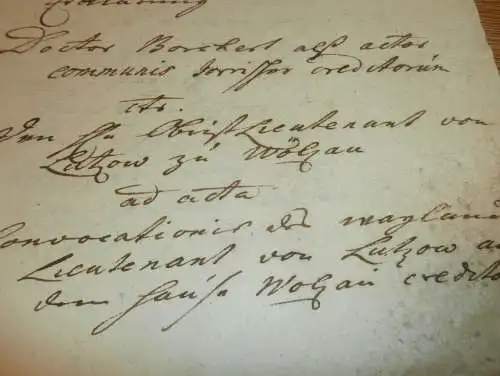 Doctor Borchert alß actor
communis creditorum
ctr.
den H. Obrist Lieutenant von
Lützow zu
ad acta
Convocationis des wayland
Lieutenant von Lützow a
dem Hause credito